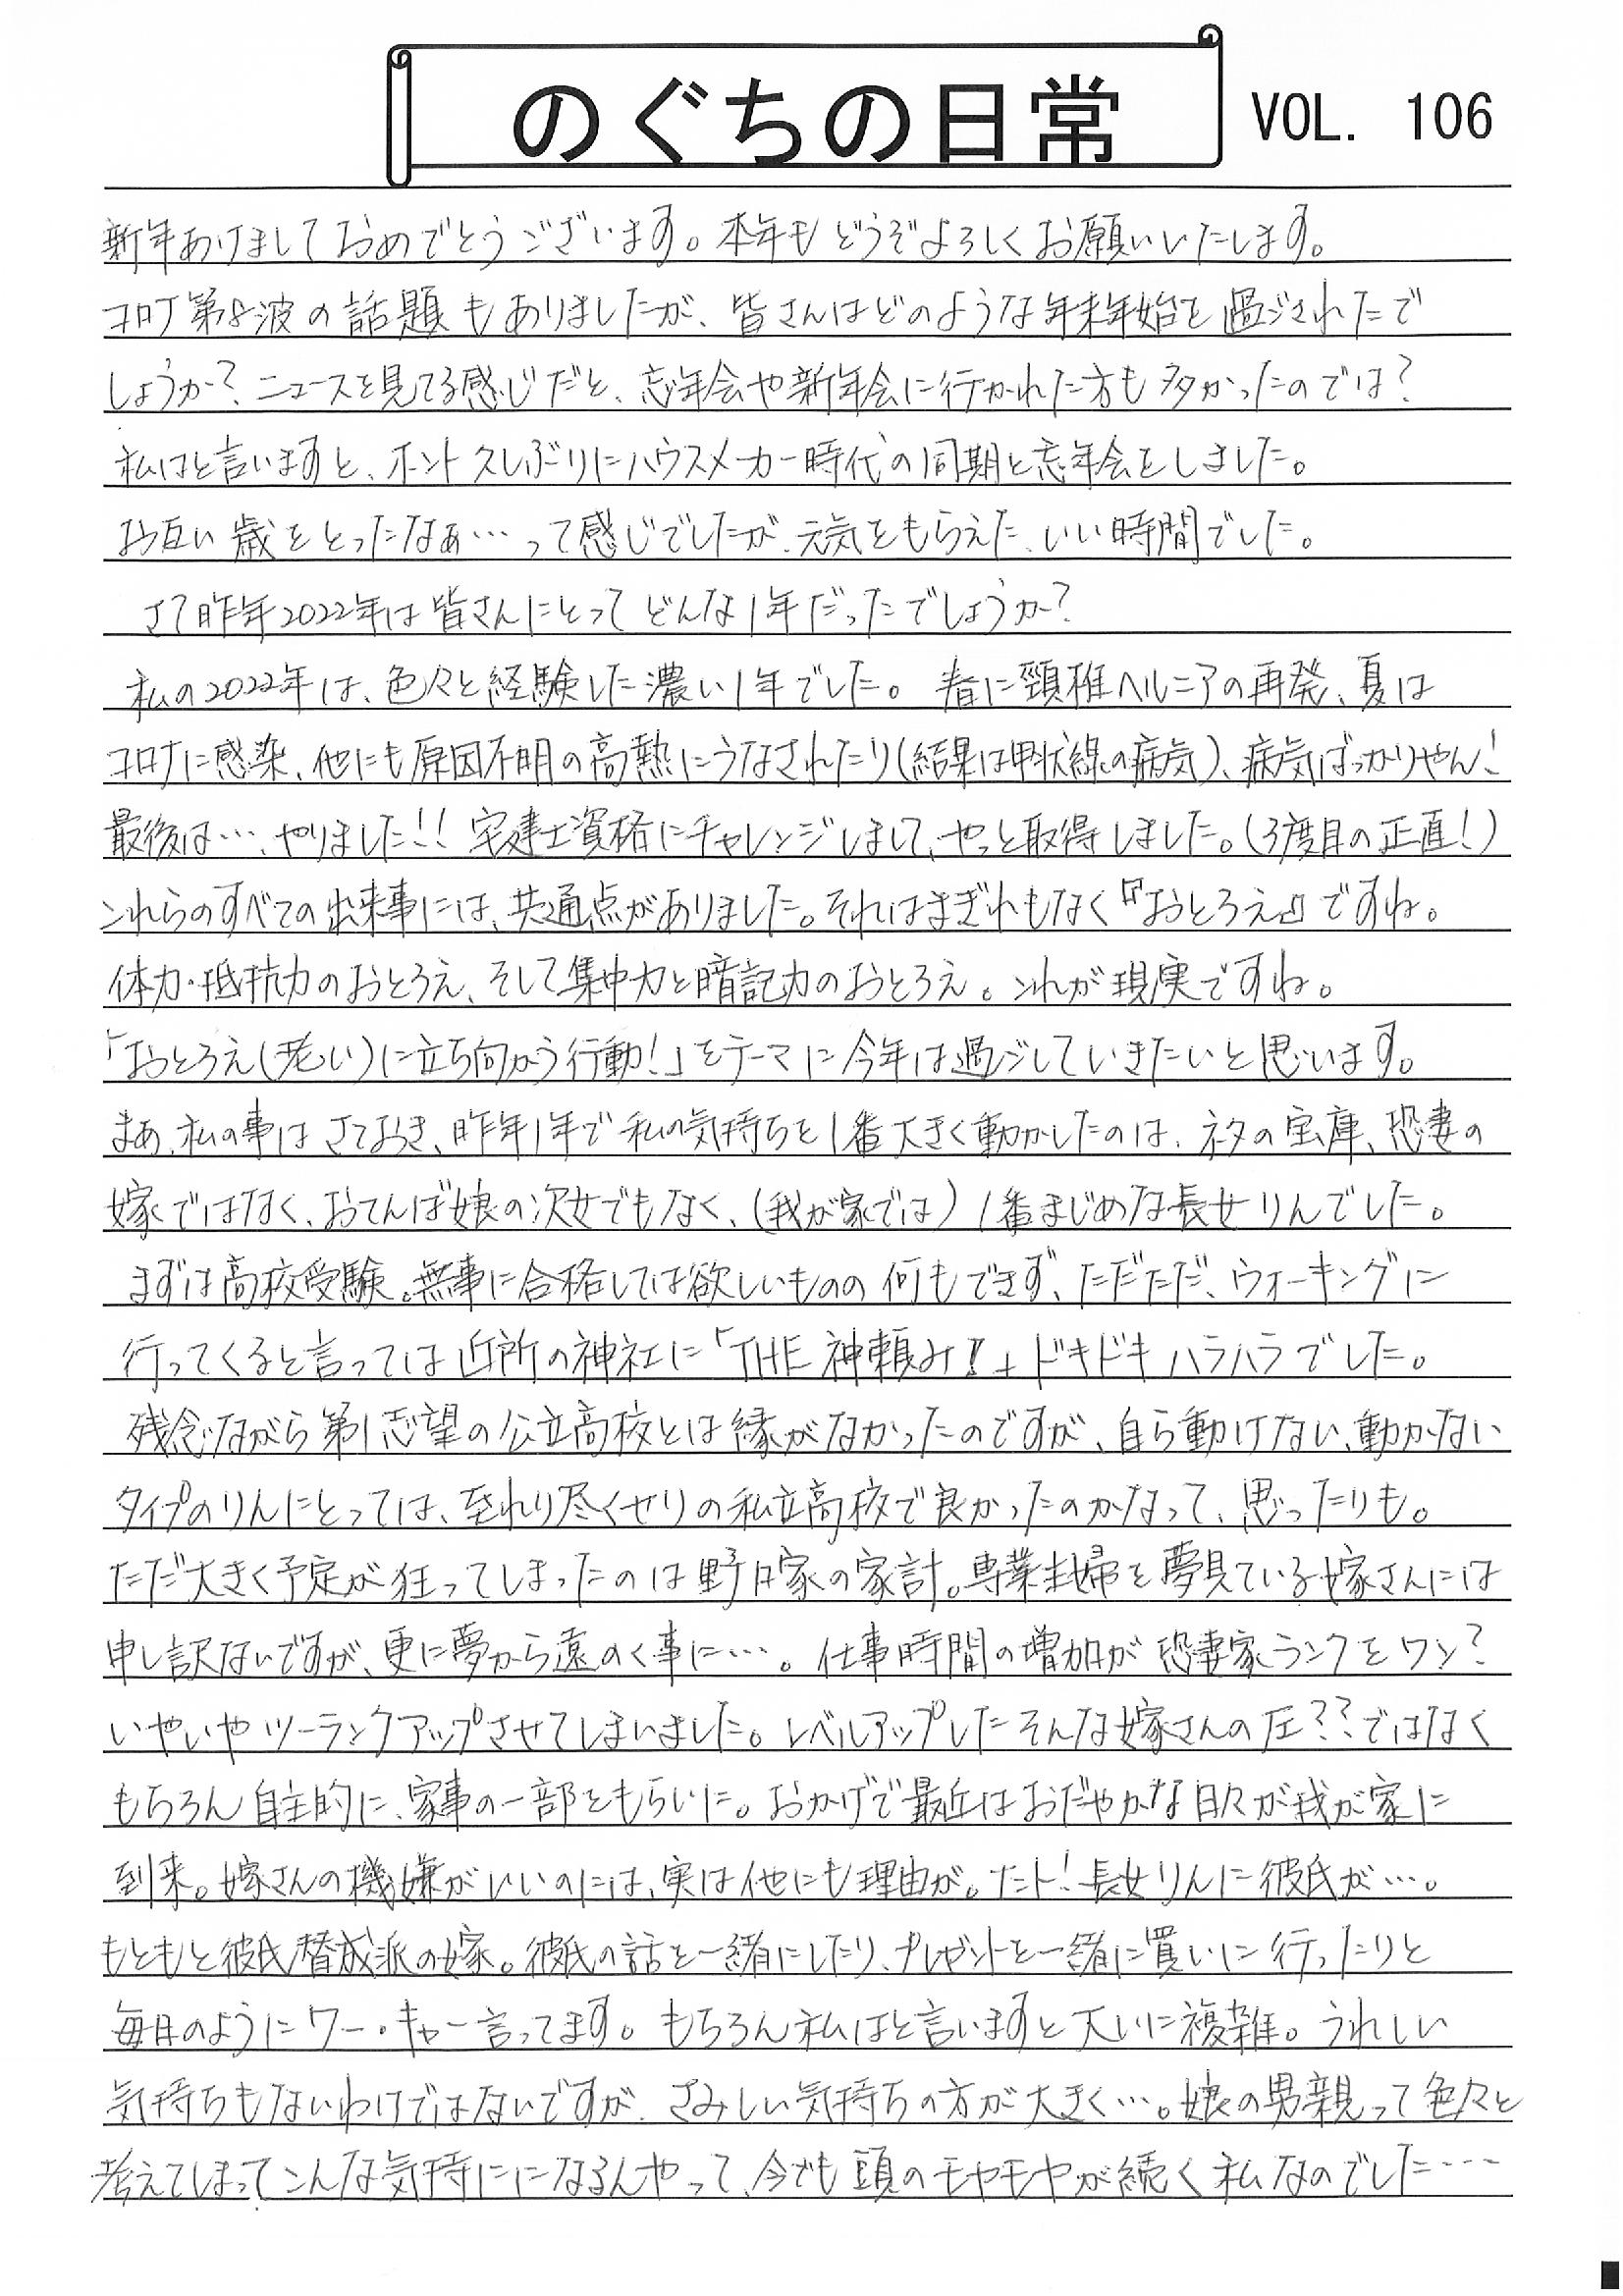 のぐちの日常 VOL. 106
新年あけましておめでとうございます。本年もどうぞよろしくお願いいたします。
コロナ第8波の話題もありましたが、皆さんはどのような年末年始を過ごされたで
しょうか?ニュースを見てる感じだと、忘年会や新年会に行かれた方も多かったのでは?
私はと言いますと、ホント久しぶりにハウスメーカー時代の同期と忘年会をしました。
お互い歳をとったなぁ…って感じでしたが、元気をもらえた、いい時間でした。
さて昨年2022年は皆さんにとってどんな1年だったでしょうか?
私の2022年は、色々と経験した濃い1年でした。春に頸椎ヘルニアの再発、夏は
コロナに感染、他にも原因不明の高熱にうなされたり(結果は甲状線の病気)、病気ばっかりやん!
最後は…、やりました!!宅建士資格にチャレンジしまして、やっと取得しました。(3度目の正直!)
これらのすべての出来事には、共通点がありました。それはまぎれもなく『おとろえ』ですね。
体力・抵抗力のおとろえ、そして集中力と暗記力のおとろえ。これが現実ですね。
「おとろえ(老い)に立ち向かう行動!」をテーマに今年は過ごしていきたいと思います。
まあ、私の事はさておき、昨年1年で私の気持ちを1番大きく動かしたのは、ネタの宝庫、恐妻の
嫁ではなく、おてんば娘の次女でもなく、(我が家では)1番まじめな長女りんでした。
まずは高校受験。無事に合格しては欲しいものの何もできず、ただただ、ウォーキングに
行ってくると言っては近所の神社に「THE神頼み!」ドキドキハラハラでした。
残念ながら第1志望の公立高校とは縁がなかったのですが、自ら動けない、動かない
タイプのりんにとっては、至れり尽くせりの私立高校で良かったのかなって、思ったりも。
ただ大きく予定が狂ってしまったのは野口家の家計。専業主婦を夢見ている嫁さんには
申し訳ないですが、更に夢から遠のく事に…。仕事時間の増加が恐妻家ランクをワン?
いやいやツーランクアップさせてしまいました。レベルアップしたそんな嫁さんの圧??ではなく
もちろん自主的に、家事の一部をもらいに。おかげで最近はおだやかな日々が我が家に
到来。嫁さんの機嫌がいいのには、実は他にも理由が。ナント!長女りんに彼氏が…。
もともと彼氏賛成派の嫁。彼氏の話を一緒にしたり、プレゼントを一緒に買いに行ったりと
毎日のようにワー・キャー言ってます。もちろん私はと言いますと大いに複雑。うれしい
気持ちもないわけではないですが、さみしい気持ちの方が大きく…。娘の男親って色々と
考えてしまってこんな気持ににになるんやって、今でも頭のモヤモヤが続く私なのでした…